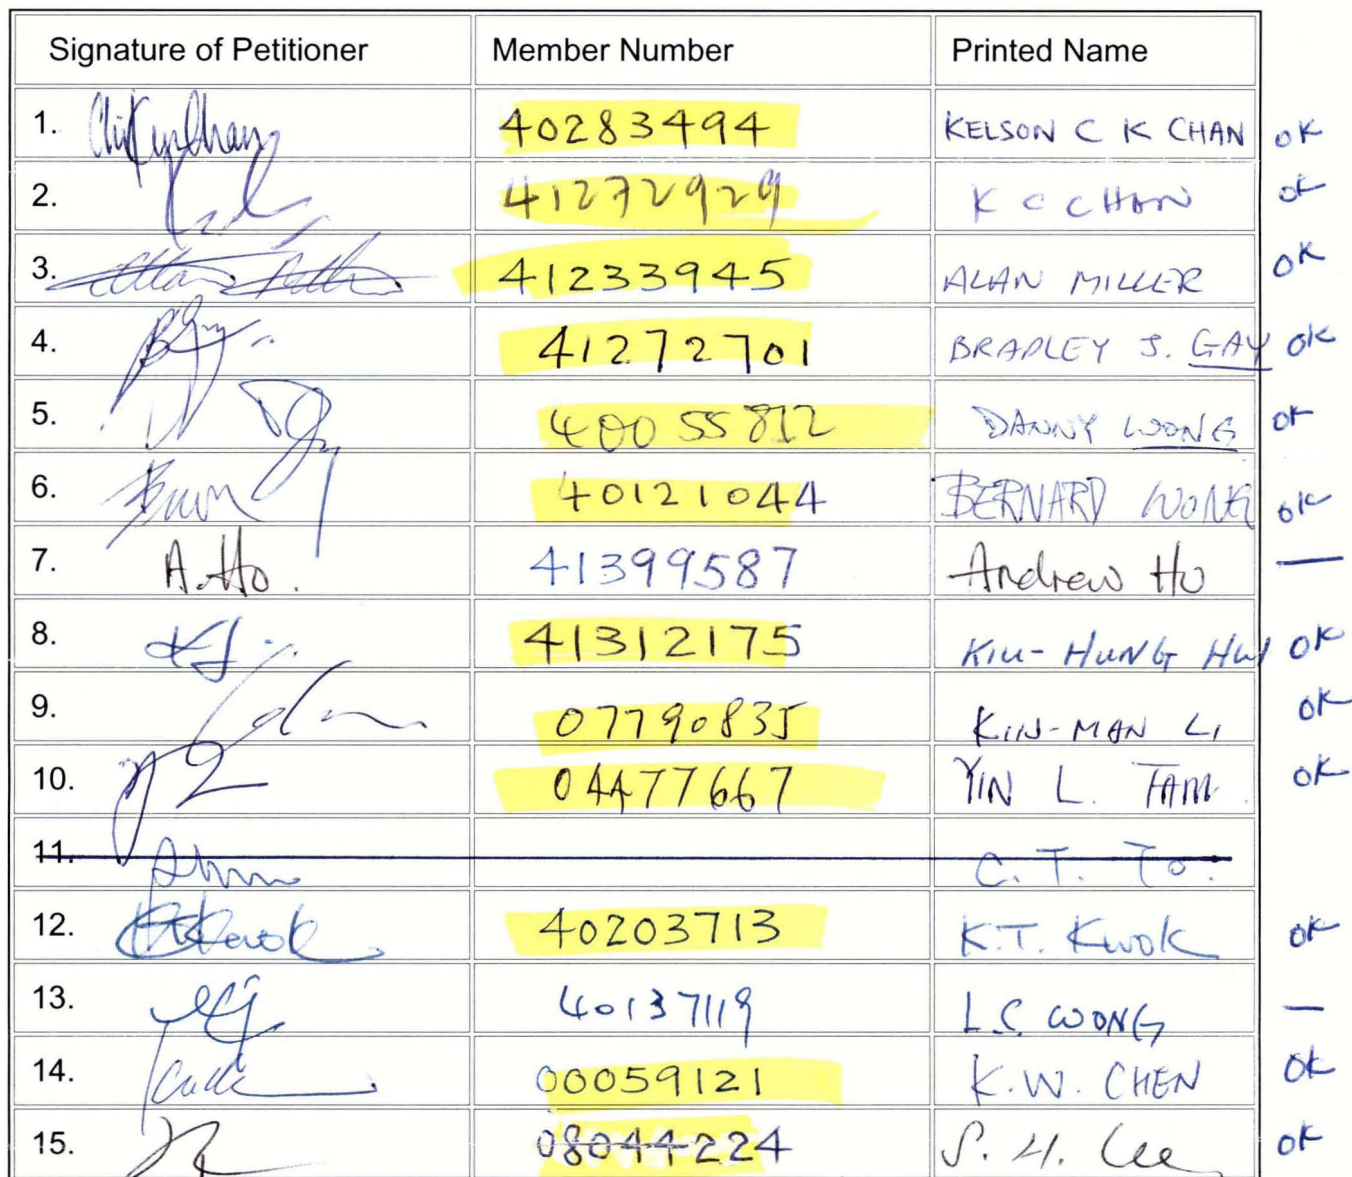 Signature of Petitioner Member Number Printed Name
1. 40283494 KELSON C K CHAN OK
2. 41272929 K C CHAN OK
3. 41233945 ALAN MILLER OK
4. 41272701 BRADLEY J. GAY OK
5. 40055812 DANNY WONG OK
6. 40121044 BERNARD WONG OK
7. A. Ho. 41399587 Andrew Ho —
8. 41312175 KIU-HUNG HUI OK
9. 07790835 KIN-MAN LI OK
10. 04477667 YIN L. TAM. OK
11. C. T. To.
12. Kwok 40203713 K.T. Kwok OK
13. 40137119 L.C. WONG —
14. 00059121 K.W. CHEN OK
15. 08044224 S. H. Lee OK